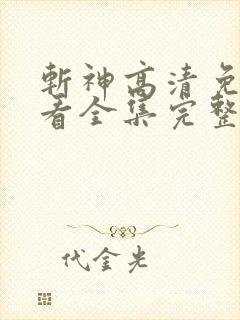 斩神高清免
看全集完整
代金光